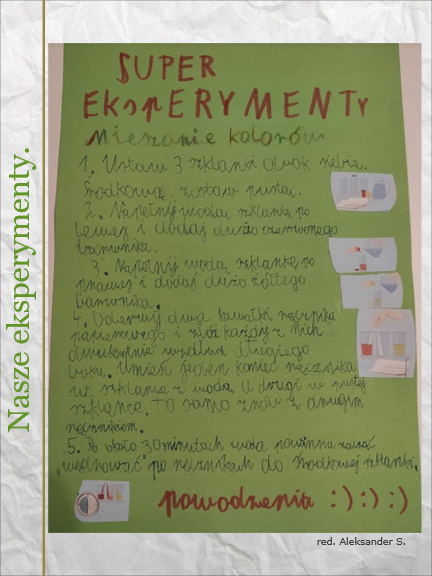 Nasze eksperymenty.
SUPER
EKspERYMENTy
Mieszanie kolorów
1. Ustaw 3 szklanki obok siebie.
Środkową zostaw pustą.
2. Napełnij wodą szklankę po
lewej i dodaj dużo czerwonego
barwnika.
3. Napełnij wodą szklankę po
prawej i dodaj dużo żółtego
barwnika.
4. Oderwij dwa kawałki ręcznika
papierowego i złóż każdy z nich
dwukrotnie wzdłuż długiego
boku. Umieść jeden koniec ręcznika
w szklance z wodą a drugi w pustej
szklance. To samo zrób z drugim
ręcznikiem.
5. Po około 30 minutach woda powinna zacząć
„wędrować" po ręcznikach do środkowej szklanki.
powodzenia :) :) :)
red. Aleksander S.